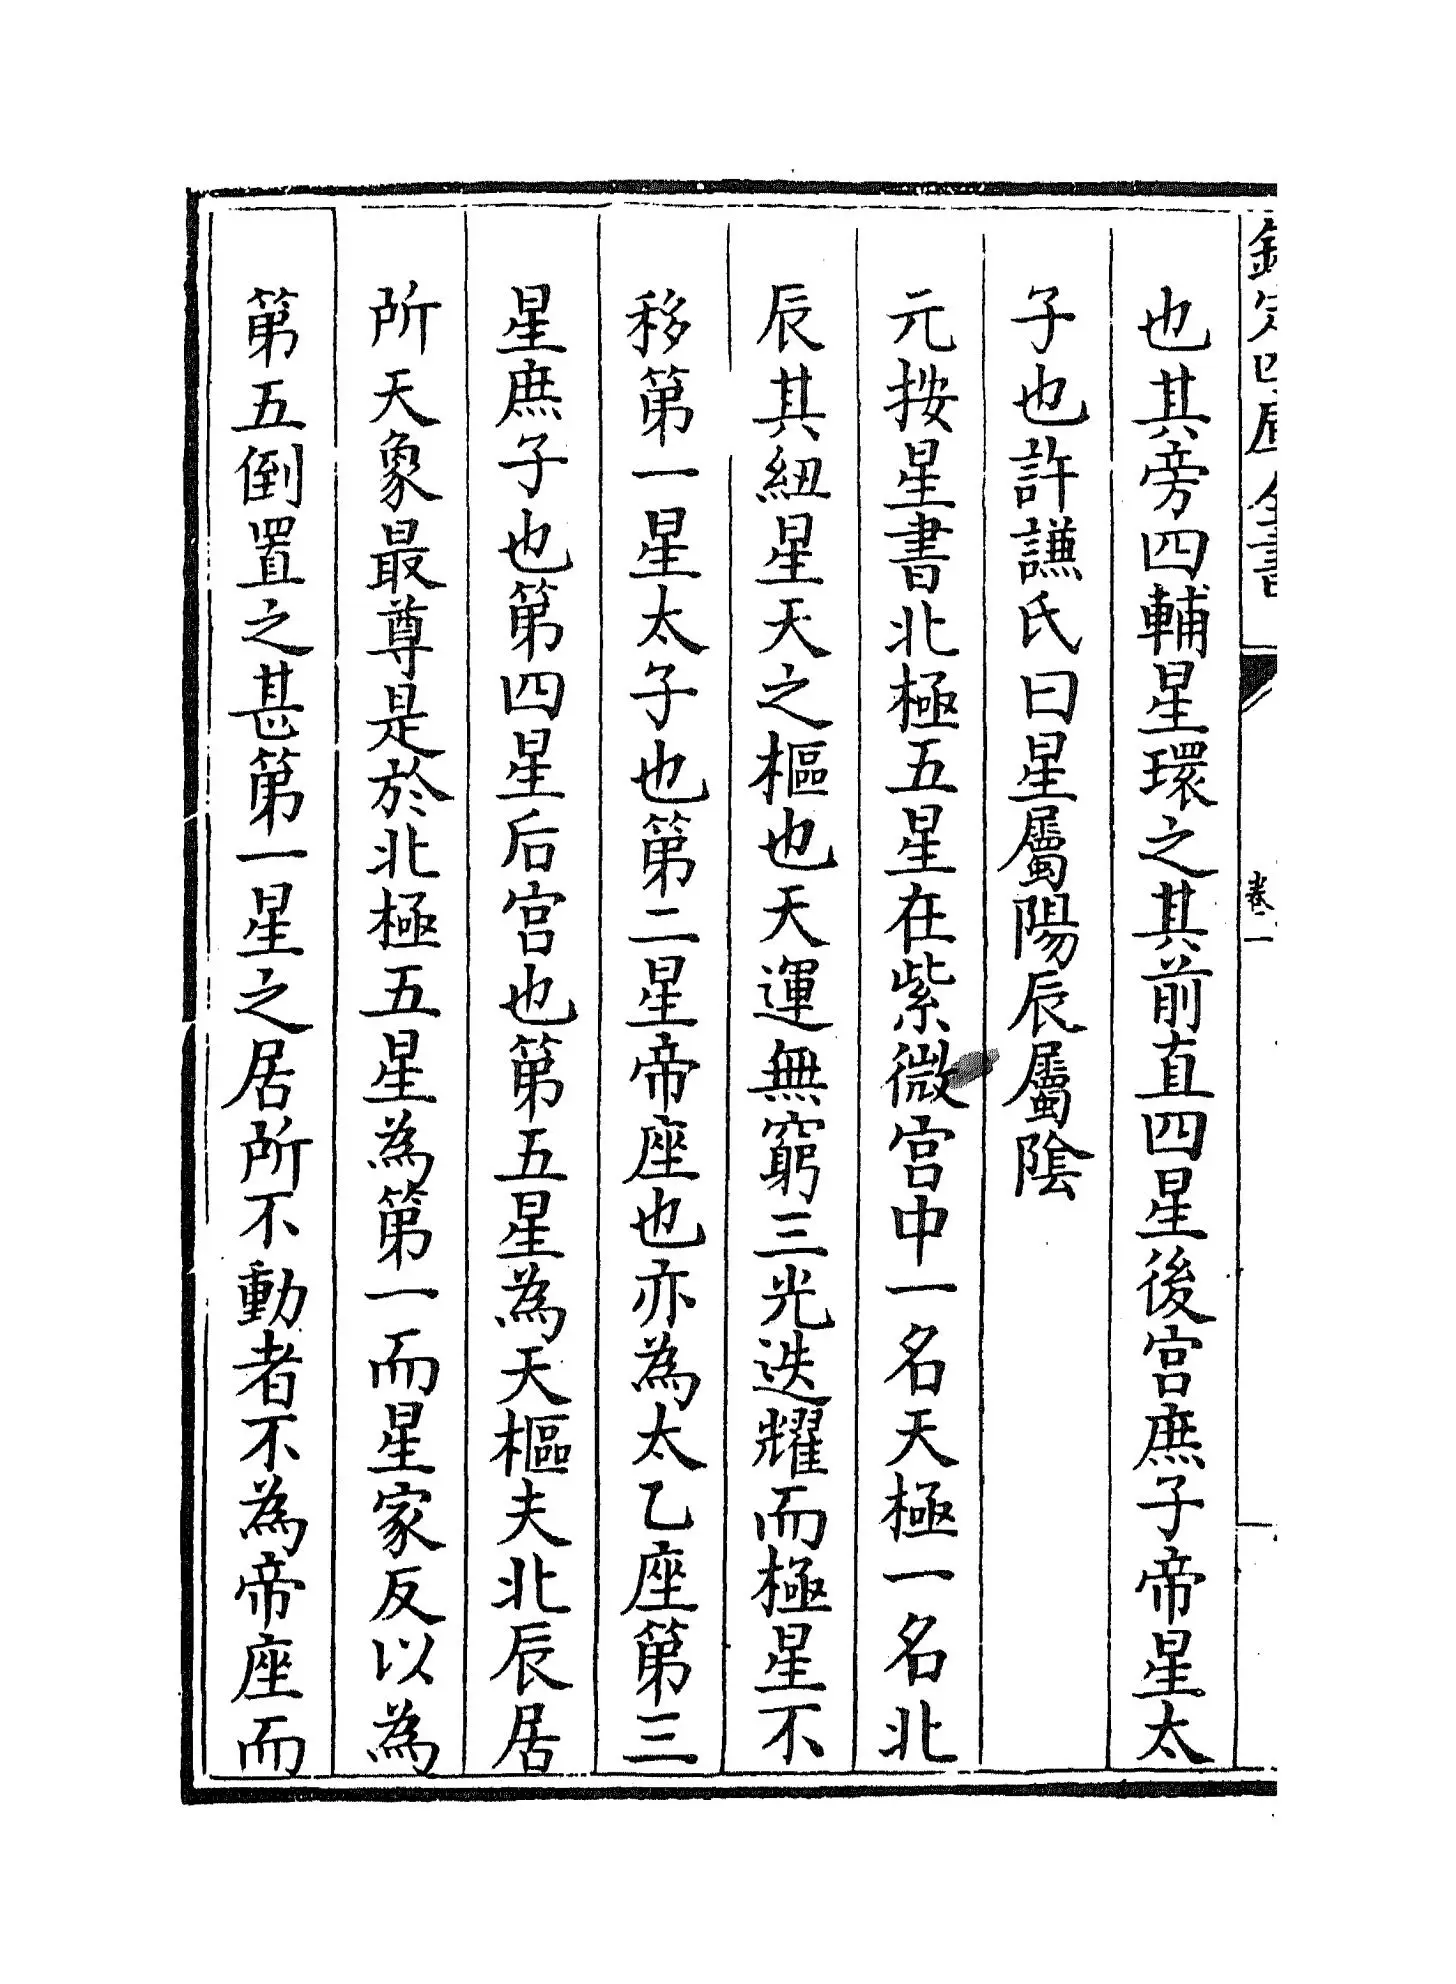 欽定四庫全書
卷二
也其旁四輔星環之其前直四星後宮庶子帝星太
子也許謙氏曰星屬陽辰屬陰
元按星書北極五星在紫微宮中一名天極一名北
辰其紐星天之樞也天運無窮三光迭耀而極星不
移第一星太子也第二星帝座也亦為太乙座第三
星庶子也第四星后宮也第五星為天樞夫北辰居
所天象最尊是於北極五星為第一而星家反以為
第五倒置之甚第一星之居所不動者不為帝座而